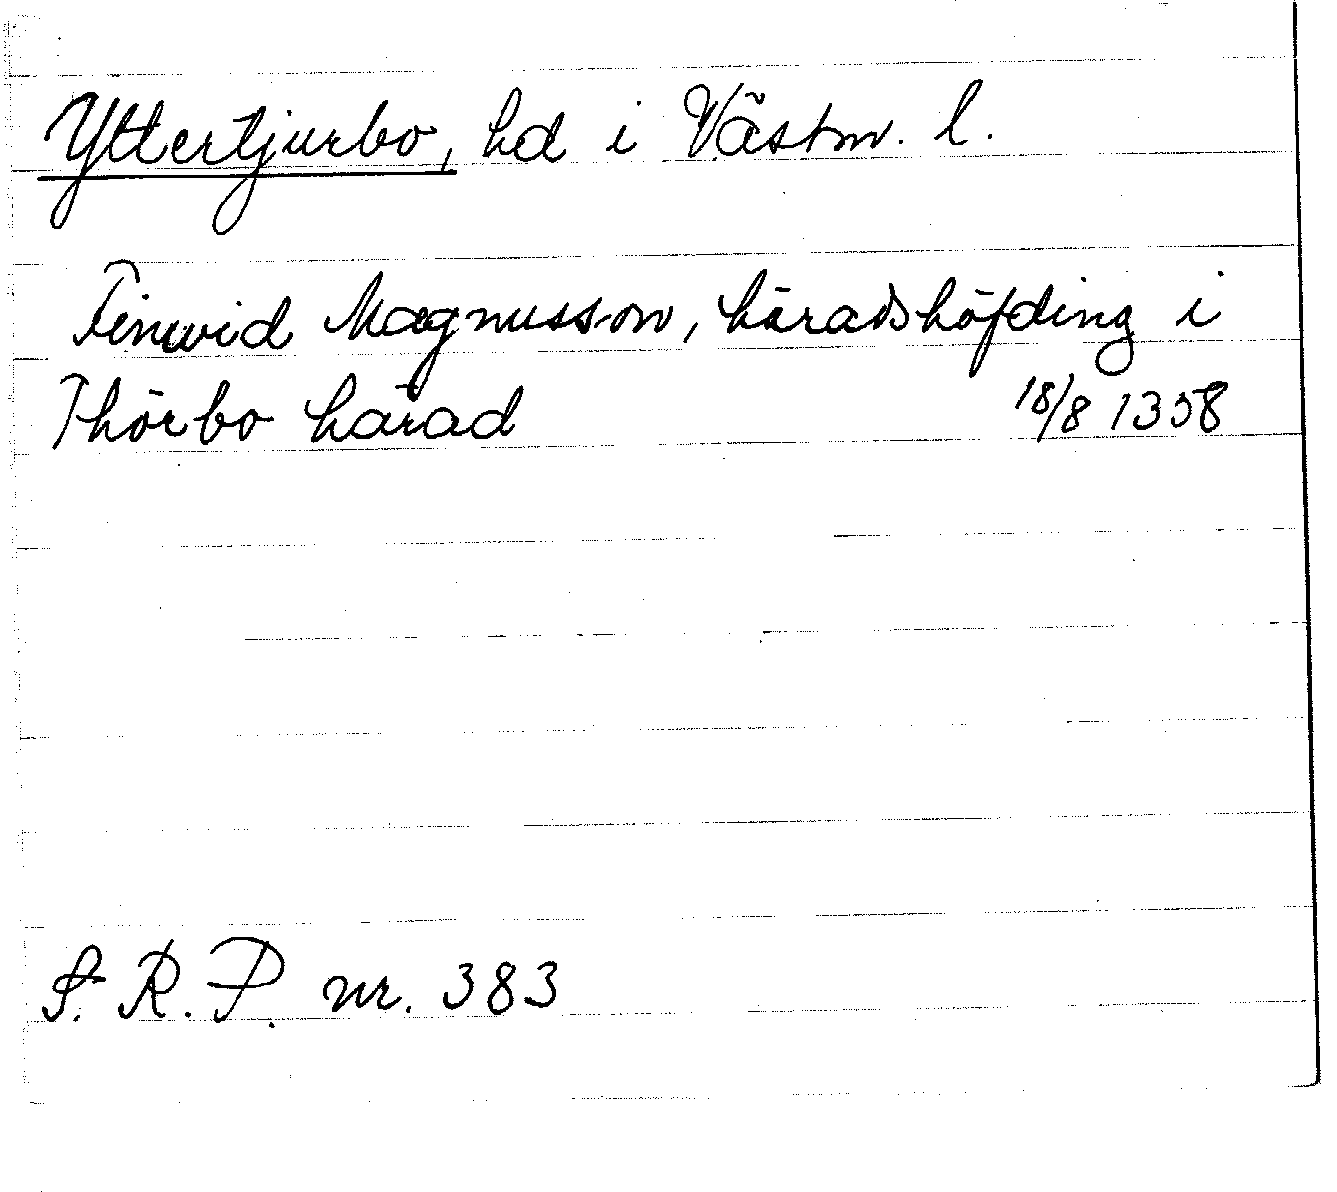 Yttertjurbo, hd i Västm. l.
Finwid Magnusson, häradshöfding i
Thörbo härad 18/8 1358
S. R. P. nr. 383